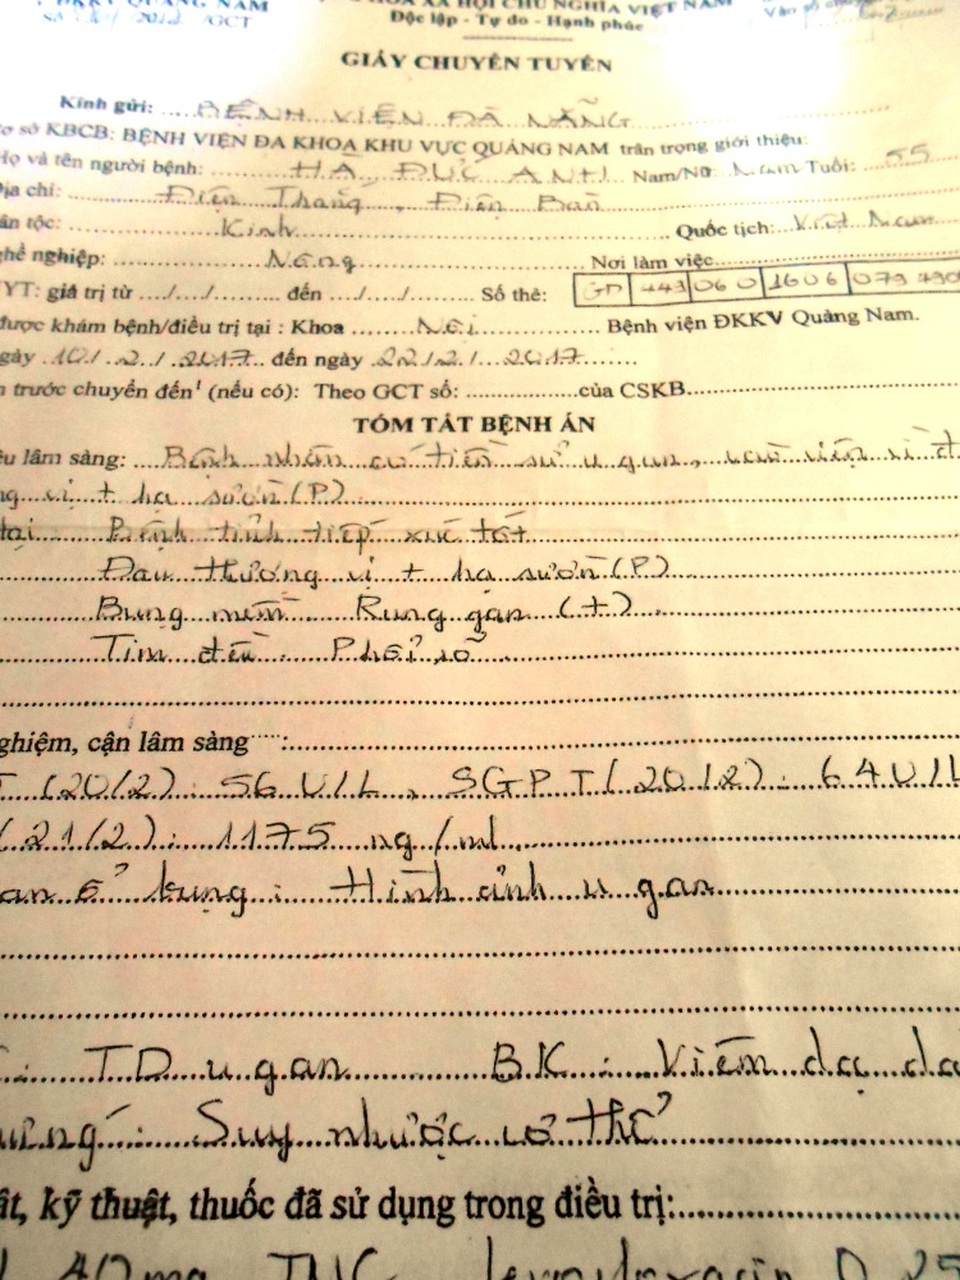 ĐKKV QUẢNG NAM HÒA XÃ HỘI CHỦ NGHĨA VIỆT NAM
/GCT Độc lập - Tự do - Hạnh phúc
GIẤY CHUYỂN TUYẾN
Kính gửi: BỆNH VIỆN ĐÀ NẴNG
ơ sở KBCB: BỆNH VIỆN ĐA KHOA KHU VỰC QUẢNG NAM trân trọng giới thiệu:
Họ và tên người bệnh: HÀ ĐỨC ANH Nam/Nữ: Nam Tuổi: 55
Địa chỉ: Điện Thắng, Điện Bàn
ân tộc: Kinh Quốc tịch: Việt Nam
ghề nghiệp: Nông Nơi làm việc
YT: giá trị từ .../.../......... đến .../.../......... Số thẻ: GD 443 06 0 1606 079 490
được khám bệnh/điều trị tại : Khoa Nội Bệnh viện ĐKKV Quảng Nam.
gày 10/2/2017 đến ngày 22/2/2017
n trước chuyển đến¹ (nếu có): Theo GCT số: của CSKB
TÓM TẮT BỆNH ÁN
ệu lâm sàng: Bệnh nhân có tiền sử u gan, vào viện vì đ
ng vị + hạ sườn (P)
tại Bệnh tỉnh tiếp xúc tốt
Đau thượng vị + hạ sườn (P)
Bụng mềm Rung gan (+)
Tim đều Phổi rõ
ghiệm, cận lâm sàng :
T (20/2): 56 U/L, SGPT (20/2): 64 U/l
(21/2): 1175 ng/ml
an ổ bụng: Hình ảnh u gan
: TD u gan BK: Viêm dạ dà
Suy nhược cơ thể
ật, kỹ thuật, thuốc đã sử dụng trong điều trị:
40mg